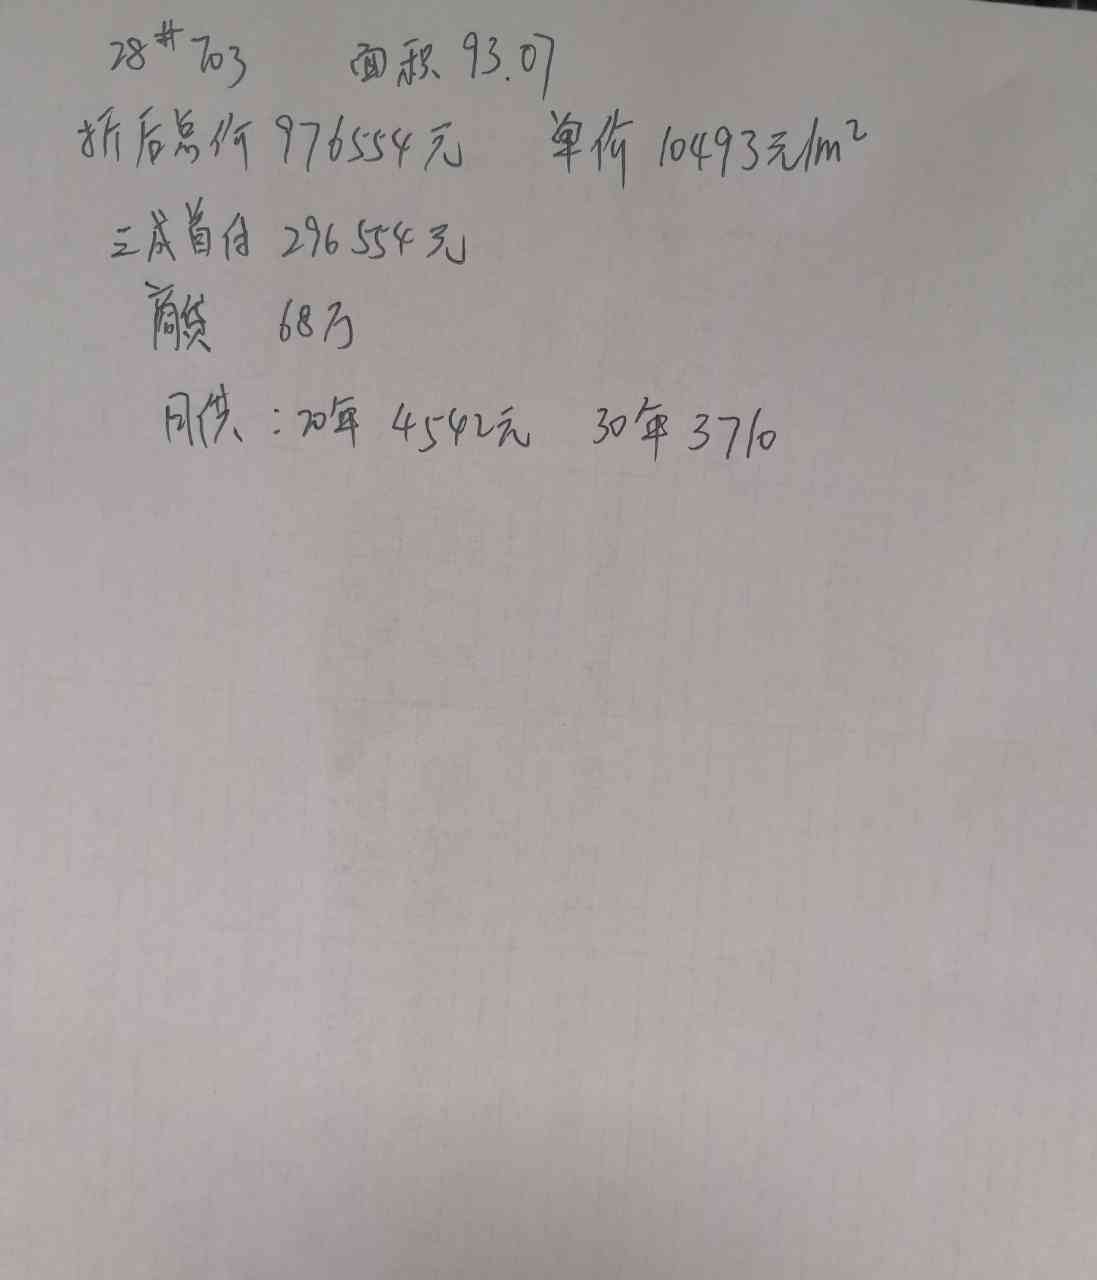 28# 703 面积 93.07
折后总价 976554元 单价 10493元/m²
三成首付 296554元
商贷 68万
月供：20年 4542元 30年 3710